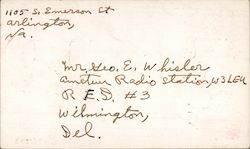 1105 S. Emerson St
Arlington,
Va.
Mr. Geo. E. Whisler
Amateur Radio Station, W3LEU
R.F.D. #3
Wilmington,
Del.